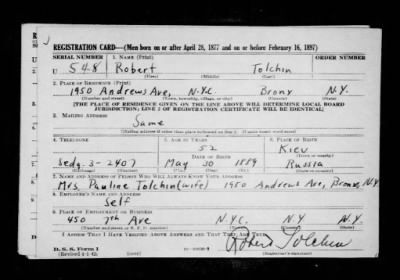 REGISTRATION CARD—(Men born on or after April 28, 1877 and on or before February 16, 1897)
SERIAL NUMBER 1. NAME (Print) ORDER NUMBER
U 548 Robert Tolchin
(First) (Middle) (Last)
2. PLACE OF RESIDENCE (Print)
1950 Andrews Ave, N.Y.C. Bronx N.Y.
(Number and street) (Town, township, village, or city) (County) (State)
[THE PLACE OF RESIDENCE GIVEN ON THE LINE ABOVE WILL DETERMINE LOCAL BOARD
JURISDICTION; LINE 2 OF REGISTRATION CERTIFICATE WILL BE IDENTICAL]
3. MAILING ADDRESS
Same
(Mailing address if other than place indicated on line 2. If same insert word same)
4. TELEPHONE 5. AGE IN YEARS 6. PLACE OF BIRTH
52 Kiev
DATE OF BIRTH (Town or county)
Sedg. 3-2407 May 30 1889 Russia
(Exchange) (Number) (Mo.) (Day) (Yr.) (State or country)
7. NAME AND ADDRESS OF PERSON WHO WILL ALWAYS KNOW YOUR ADDRESS
Mrs. Pauline Tolchin (wife) 1950 Andrews Ave, Bronx, N.Y.
8. EMPLOYER'S NAME AND ADDRESS
Self
9. PLACE OF EMPLOYMENT OR BUSINESS
450 7th Ave N.Y.C. N.Y N.Y.
(Number and street or R. F. D. number) (Town) (County) (State)
I AFFIRM THAT I HAVE VERIFIED ABOVE ANSWERS AND THAT THEY ARE TRUE.
D. S. S. Form 1
(Revised 4-1-42) Robert Tolchin